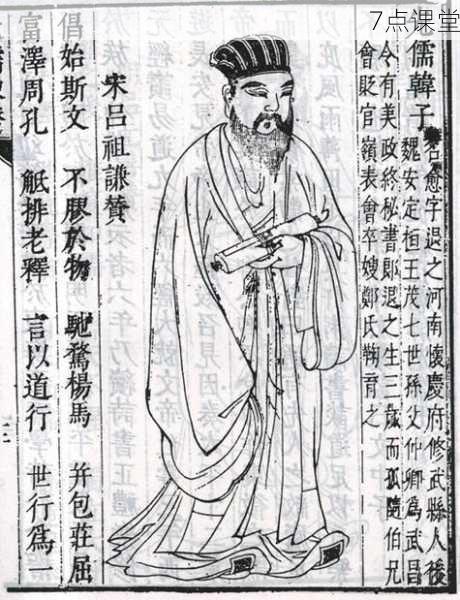 7点课堂
儒韓子
名愈字退之河南懷慶府修武縣人後
魏安定桓王茂七世孫父仲卿爲武昌
令有美政終秘書郎退之生三歲而孤隨伯兄
會貶官嶺表會卒嫂鄭氏鞠育之
宋呂祖謙贊
倡始斯文 不膠於物 馳騖楊馬 并包莊屈
富澤周孔 觝排老釋 言以道行 世行爲一